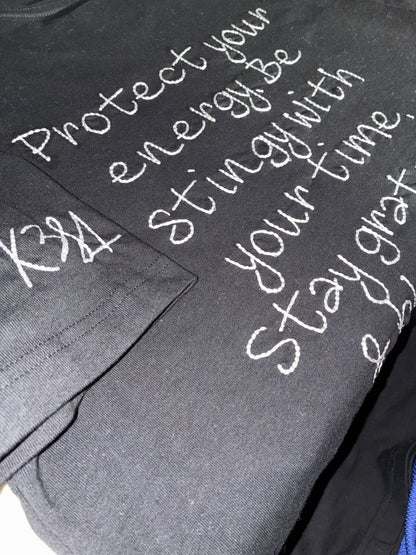 Protect your
energy. Be
stingy with
your time.
Stay grat